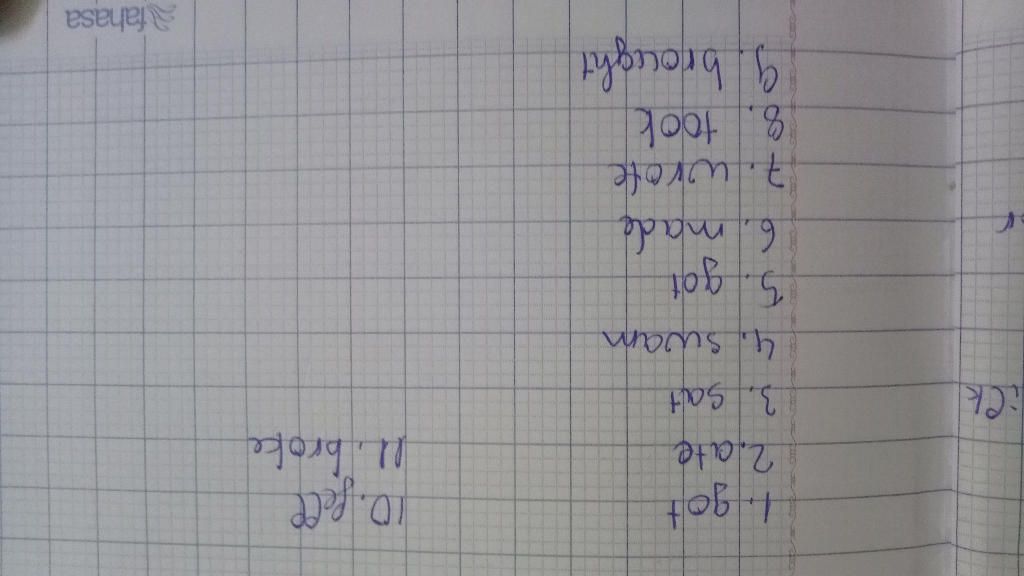 1. got
2. ate
3. sat
4. swam
5. got
6. made
7. wrote
8. took
9. brought
10. fell
11. broke
fahasa